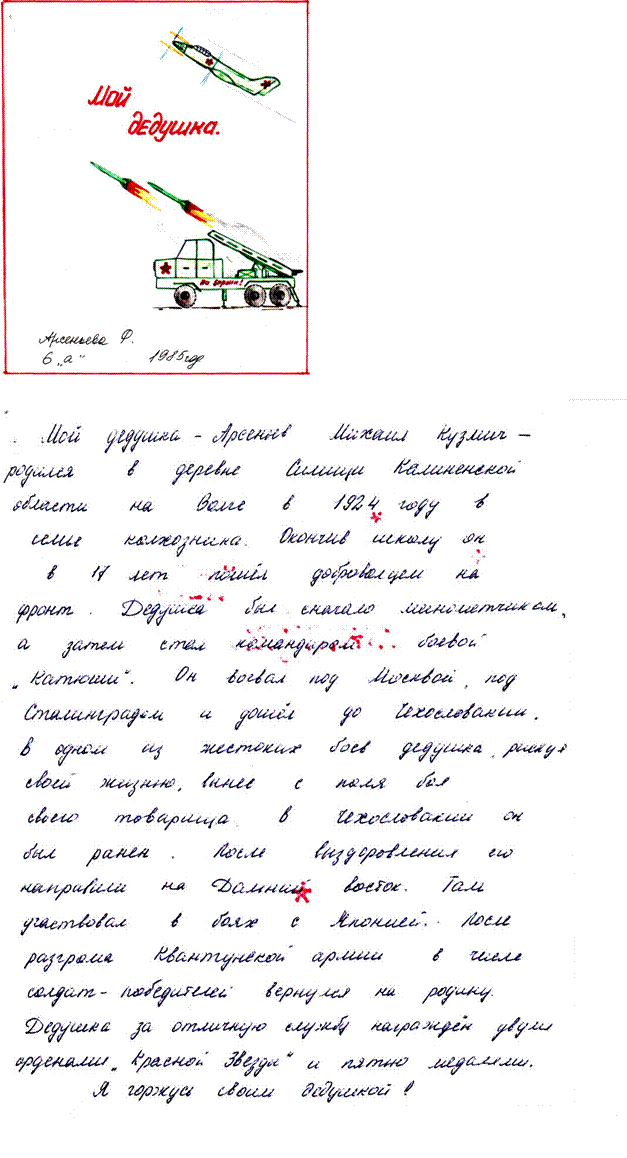 Мой
дедушка.
На Берлин!
Арсеньева Ф.
6 „а" 1985 год
Мой дедушка - Арсеньев Михаил Кузмич -
родился в деревне Силищи Калиненской
области на Волге в 1924 году в
семье колхозника. Окончив школу он
в 17 лет пошёл добровольцем на
фронт. Дедушка был сначало миномётчиком,
а затем стал командиром боевой
„Катюши". Он воевал под Москвой, под
Сталинградом и дошёл до Чехословакии.
В одном из жестоких боев дедушка, рискуя
своей жизнью, вынес с поля боя
своего товарища. В Чехословакии он
был ранен. После выздоровления его
направили на Дальний восток. Там
участвовал в боях с Японией. После
разгрома Квантунской армии в числе
солдат-победителей вернулся на родину.
Дедушка за отличную службу награждён двумя
орденами „Красной Звезды" и пятью медалями.
Я горжусь своим дедушкой!